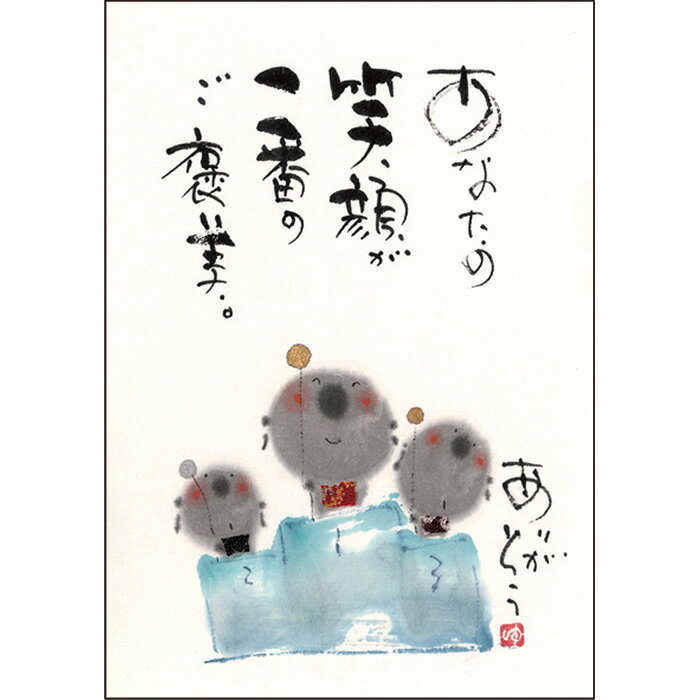 あなたの
笑顔が
一番の
ご褒美。
ありがとう
2
1
3
ゆ